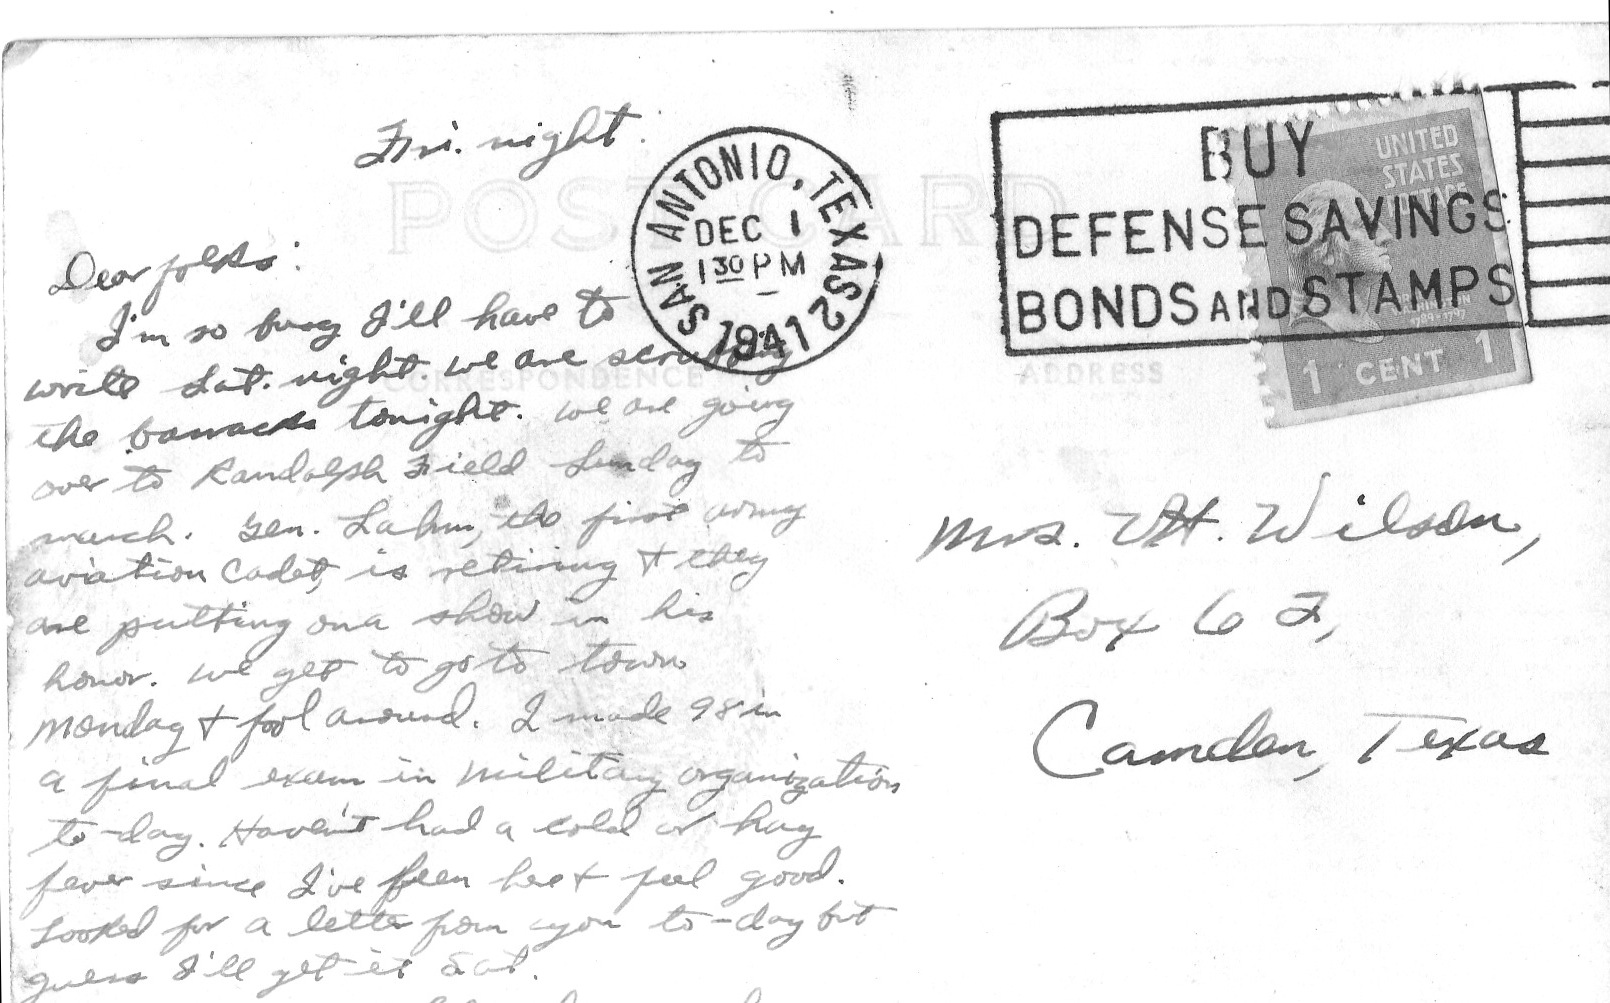 Fri. night.
POST CARD
SAN ANTONIO, TEXAS 2
DEC 1
1 30 PM
1941
BUY
DEFENSE SAVINGS
BONDS AND STAMPS
UNITED
STATES
1789-1797
1 CENT 1
CORRESPONDENCE
ADDRESS
Dear folks:
I'm so busy I'll have to
write Sat. night. We are scrubbing
the barracks tonight. We are going
over to Randolph Field Sunday to
march. Gen. Lahm, the first army
aviation cadet, is retiring & they
are putting on a show in his
honor. We get to go to town
Monday & fool around. I made 98 in
a final exam in military organization
to-day. Haven't had a cold or hay
fever since I've been here & feel good.
Looked for a letter from you to-day but
guess I'll get it Sat.
Mrs. Wilson,
Box 62,
Camden, Texas